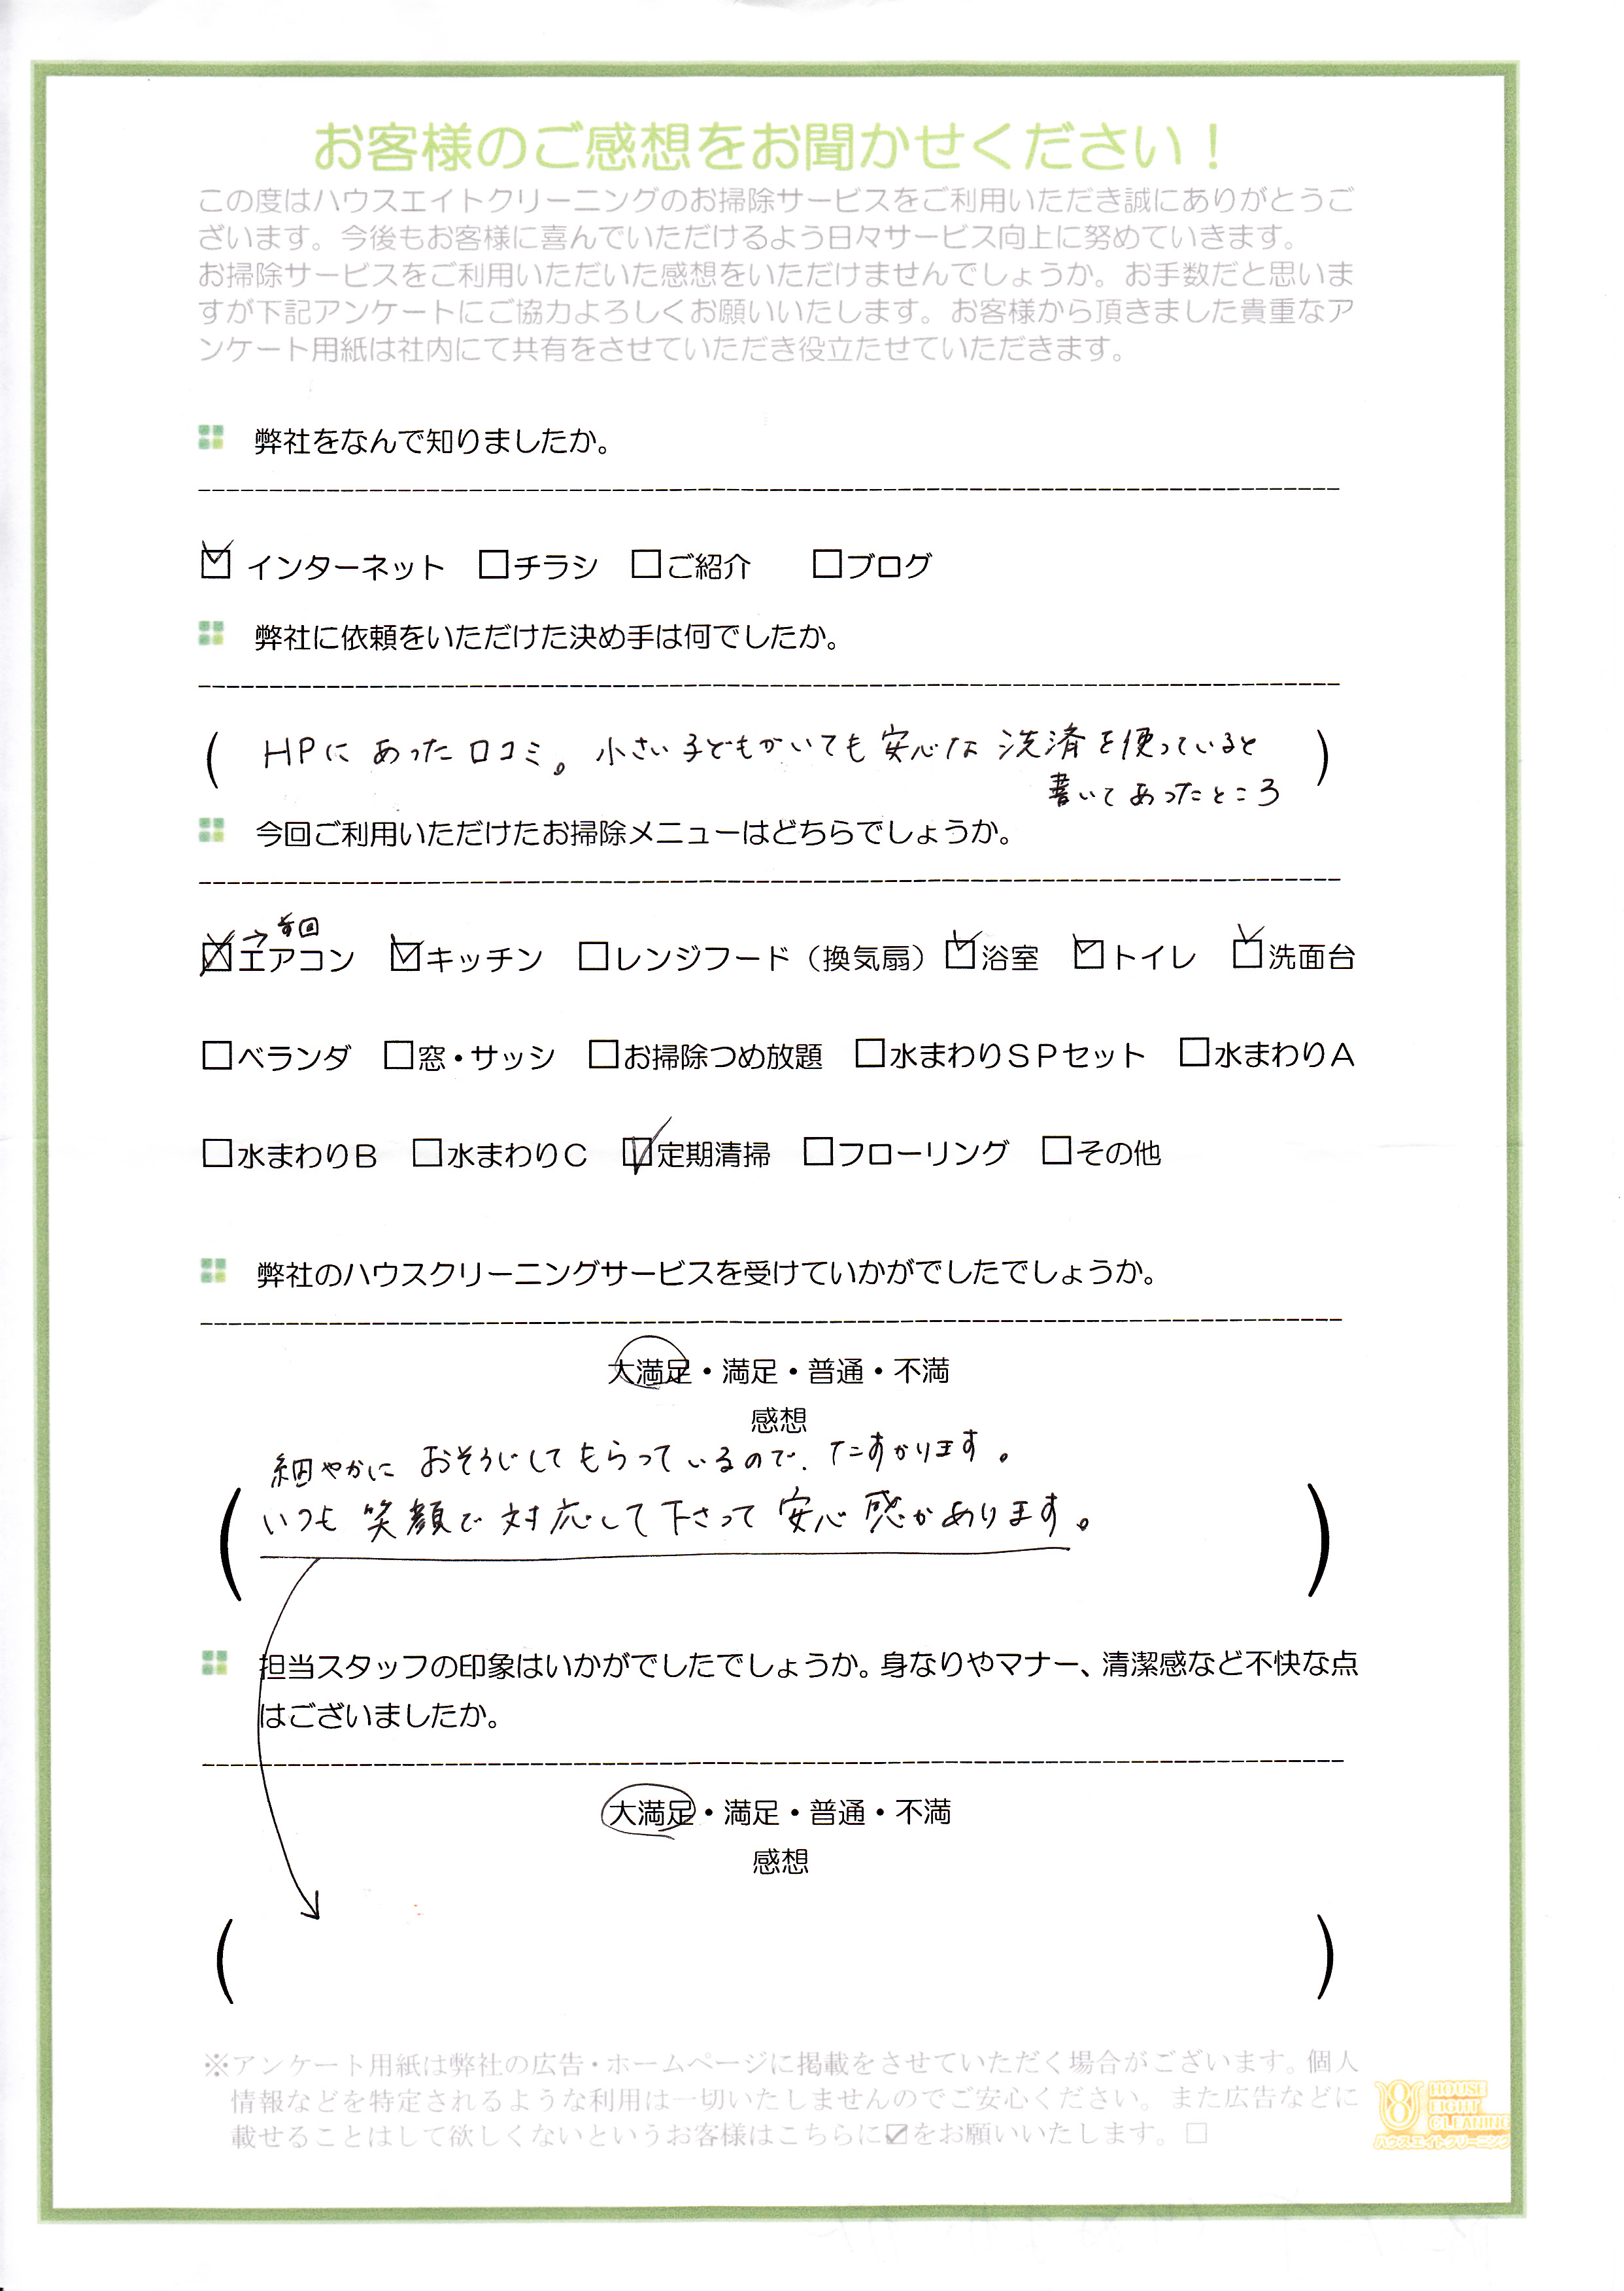 お客様のご感想をお聞かせください！
この度はハウスエイトクリーニングのお掃除サービスをご利用いただき誠にありがとうご
ざいます。今後もお客様に喜んでいただけるよう日々サービス向上に努めていきます。
お掃除サービスをご利用いただいた感想をいただけませんでしょうか。お手数だと思いま
すが下記アンケートにご協力よろしくお願いいたします。お客様から頂きました貴重なア
ンケート用紙は社内にて共有をさせていただき役立たせていただきます。
弊社をなんで知りましたか。
☑ インターネット □チラシ □ご紹介 □ブログ
弊社に依頼をいただけた決め手は何でしたか。
( HPにあった口コミ。小さい子どもがいても安心な洗済を使っていると )
書いてあったところ
今回ご利用いただけたお掃除メニューはどちらでしょうか。
→前回
☑エアコン ☑キッチン □レンジフード（換気扇） ☑浴室 ☑トイレ ☑洗面台
□ベランダ □窓・サッシ □お掃除つめ放題 □水まわりＳＰセット □水まわりＡ
□水まわりＢ □水まわりＣ ☑定期清掃 □フローリング □その他
弊社のハウスクリーニングサービスを受けていかがでしたでしょうか。
大満足・満足・普通・不満
感想
細やかにおそうじしてもらっているので、たすかります。
( いつも笑顔で対応して下さって安心感があります。 )
担当スタッフの印象はいかがでしたでしょうか。身なりやマナー、清潔感など不快な点
はございましたか。
大満足・満足・普通・不満
感想
( )
※アンケート用紙は弊社の広告・ホームページに掲載をさせていただく場合がございます。個人
情報などを特定されるような利用は一切いたしませんのでご安心ください。また広告などに
載せることはして欲しくないというお客様はこちらに☑をお願いいたします。□
HOUSE
EIGHT
CLEANING
ハウスエイトクリーニング